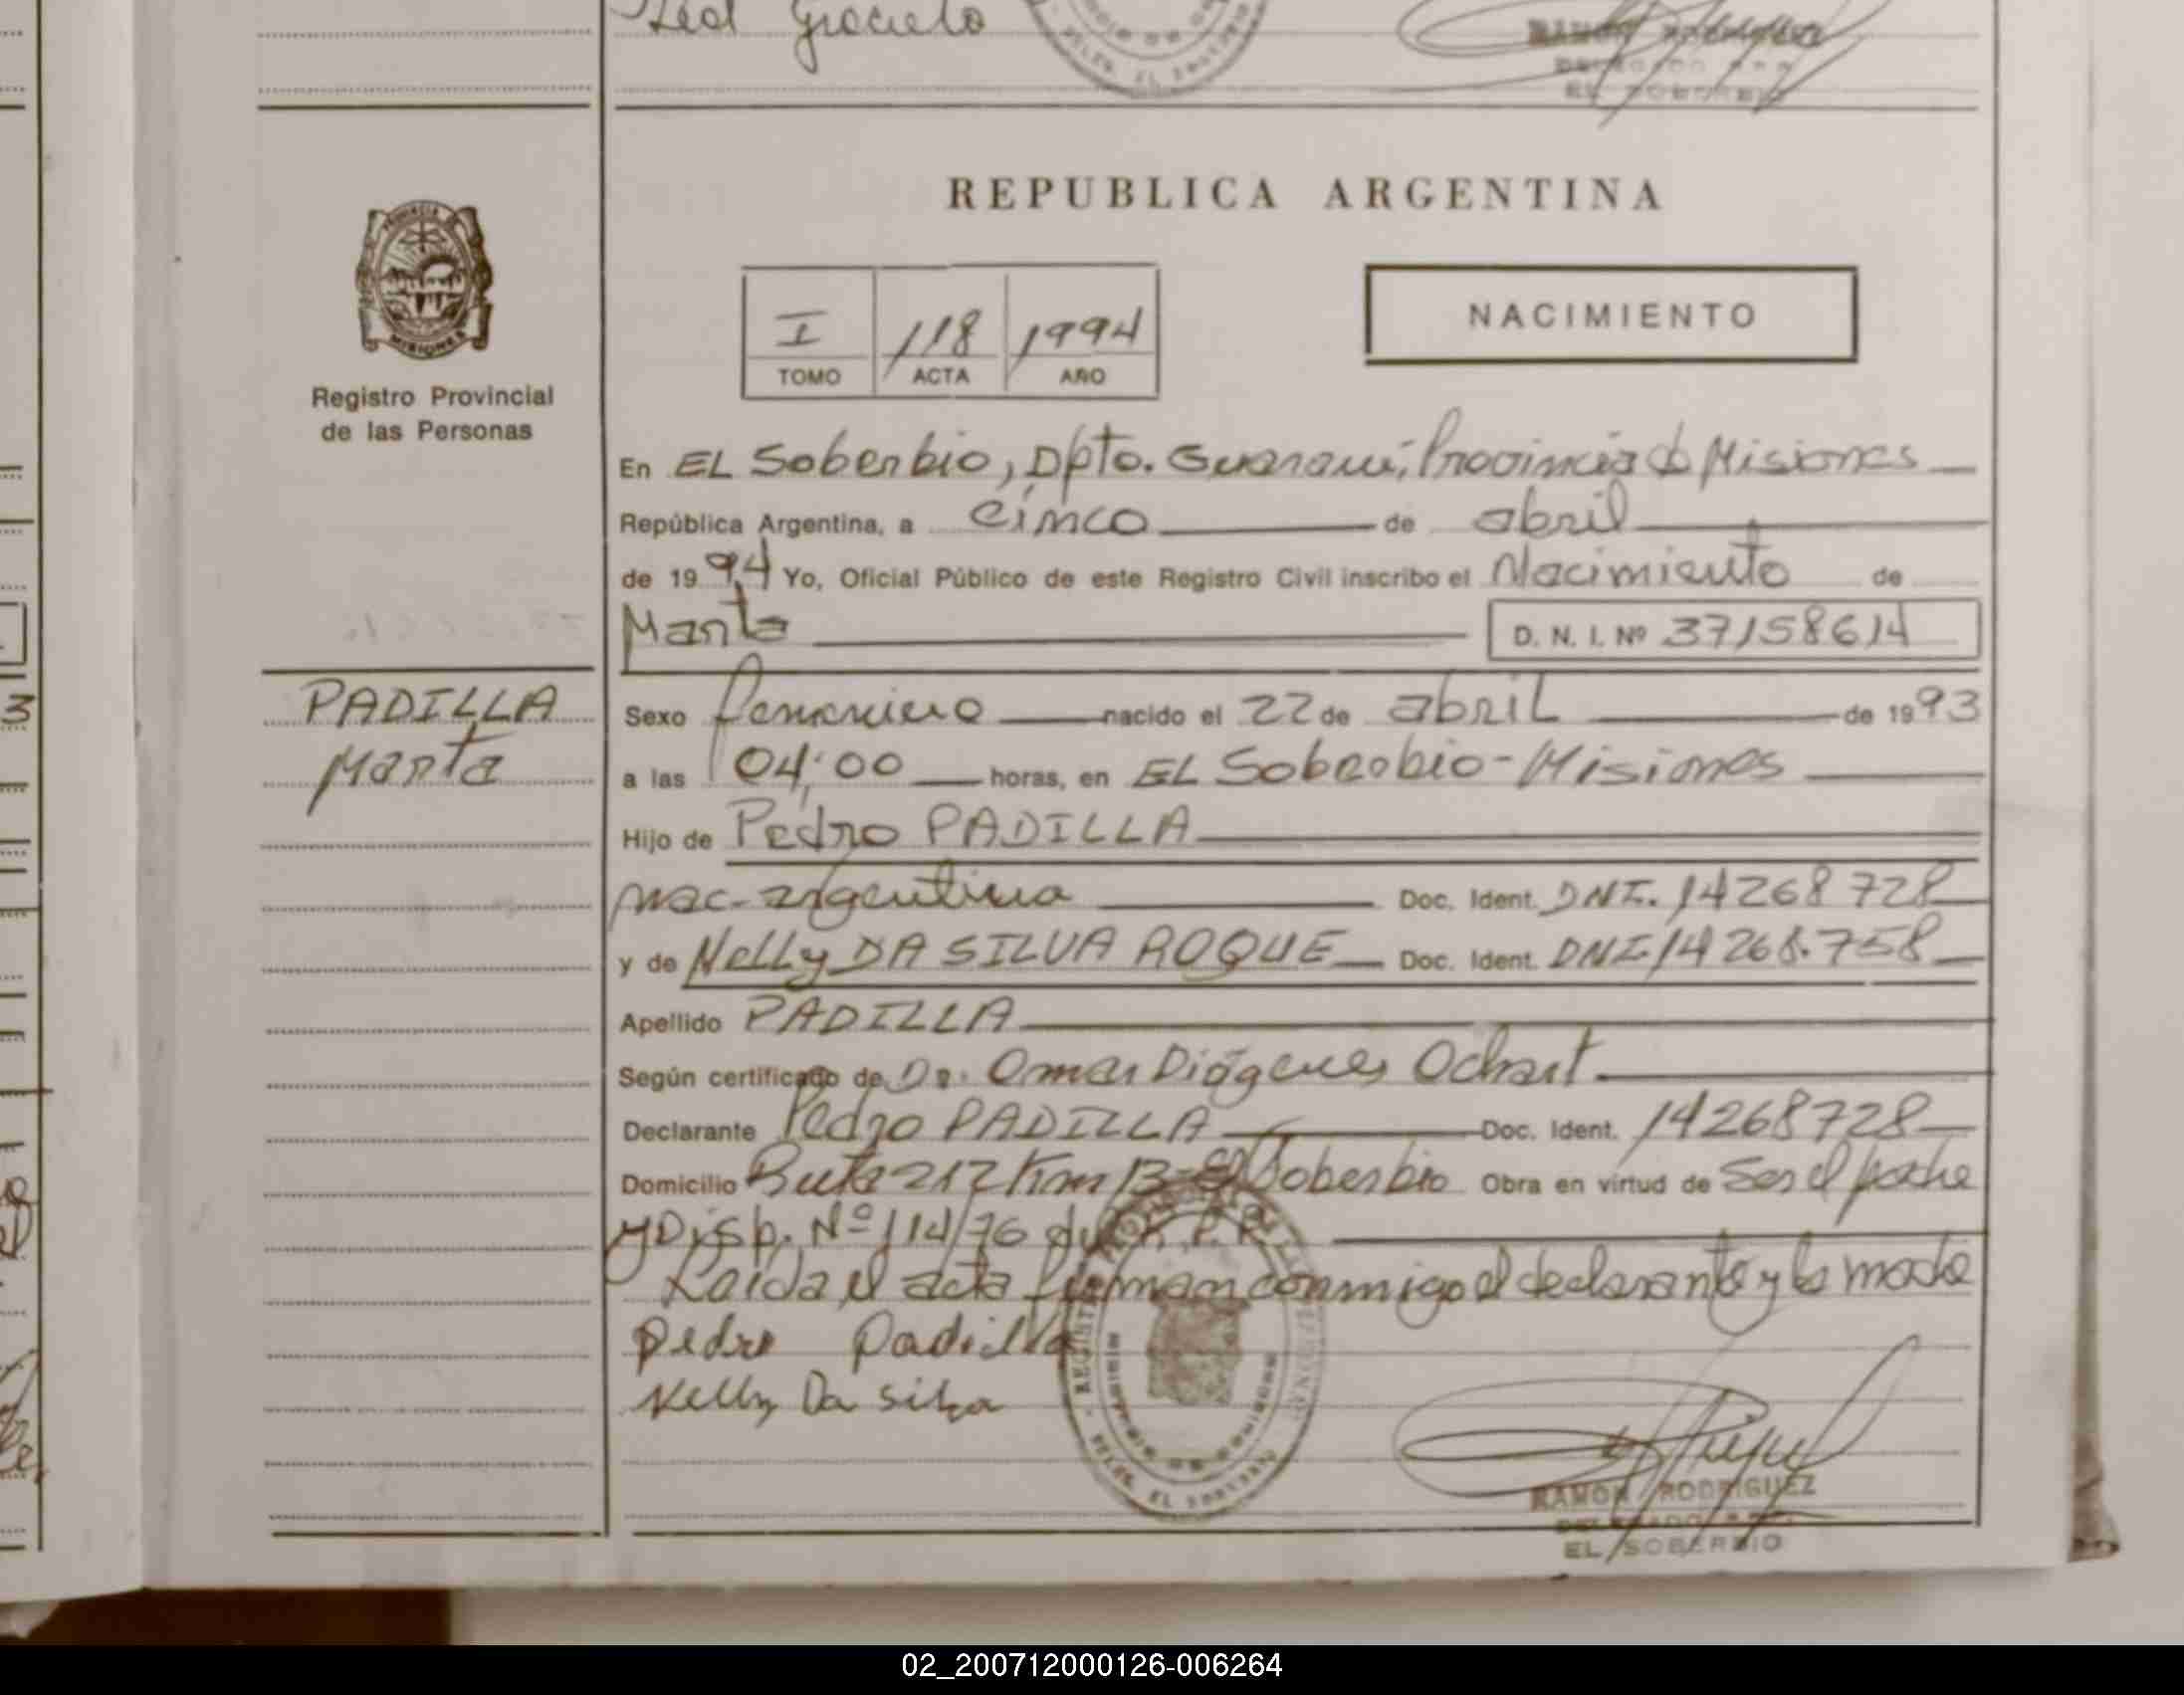 Graciela
EL SOBERBIO
REPUBLICA ARGENTINA
PROVINCIA
MISIONES
Registro Provincial
de las Personas
I 118 1994
TOMO ACTA AÑO
NACIMIENTO
En EL Soberbio, Dpto. Guaraní, Provincia de Misiones
República Argentina, a cinco de abril
de 1994 Yo, Oficial Público de este Registro Civil inscribo el Nacimiento de
Marta D. N. I. Nº 37158614
PADILLA
Marta
Sexo femenino nacido el 22 de abril de 1993
a las 04:00 horas, en EL Soberbio-Misiones
Hijo de Pedro PADILLA
nac. argentina Doc. Ident. DNI. 14268728
y de Nelly DA SILVA ROQUE Doc. Ident. DNI 14268.758
Apellido PADILLA
Según certificado de Dr. Omar Diógenes Ochart
Declarante Pedro PADILLA Doc. Ident. 14268728
Domicilio Ruta 212 Km 13-El Soberbio Obra en virtud de Ser el padre
y Disp. Nº 114/76 del R.P.P.
Leída el acta firman conmigo el declarante y la madre
Pedro Padilla
Nelly Da Silva
RAMON RODRIGUEZ
DELEGADO
EL SOBERBIO
02_200712000126-006264